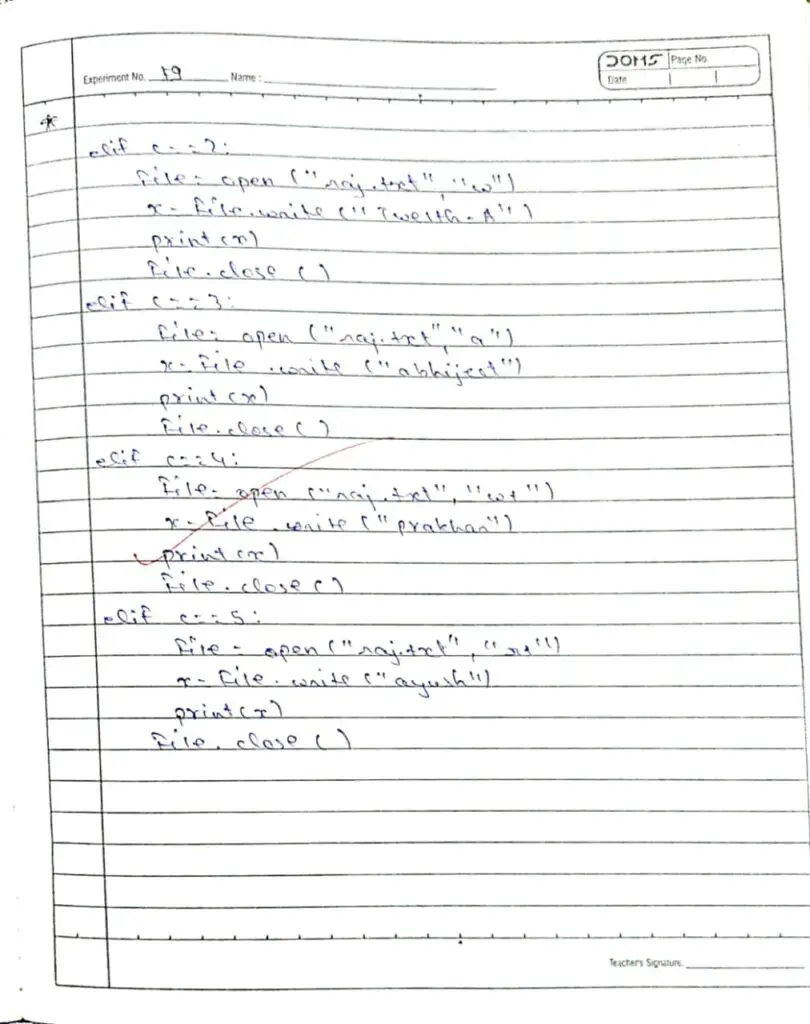 Experiment No. 19 Name :
DOMS Page No.
Date
*
elif c==2:
file= open ("raj.txt", "w")
x= file.write ("Twelth-A")
print (x)
file.close ()
elif c==3:
file= open ("raj.txt","a")
x= file .write ("abhijeet")
print (x)
file.close ()
elif c==4:
file= open ("raj.txt", "w+")
x= file .write ("prakhar")
print (x)
file.close ()
elif c==5:
file = open ("raj.txt", "r+")
x= file.write ("ayush")
print (x)
file.close ()
Teacher's Signature.